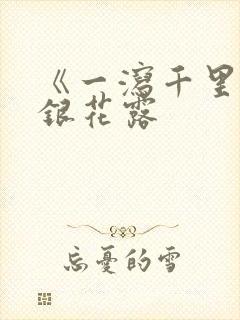 《一瀉千里
銀花露
忘憂的雪